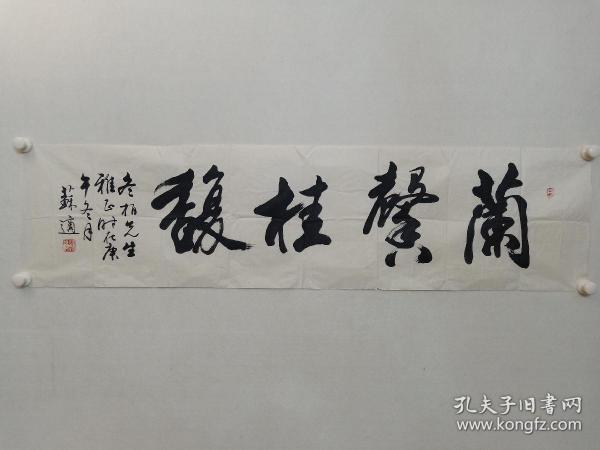 蘭馨桂馥
冬柏先生
雅正时在庚
午冬月
蘇適
孔夫子旧书网
www.kongfz.com